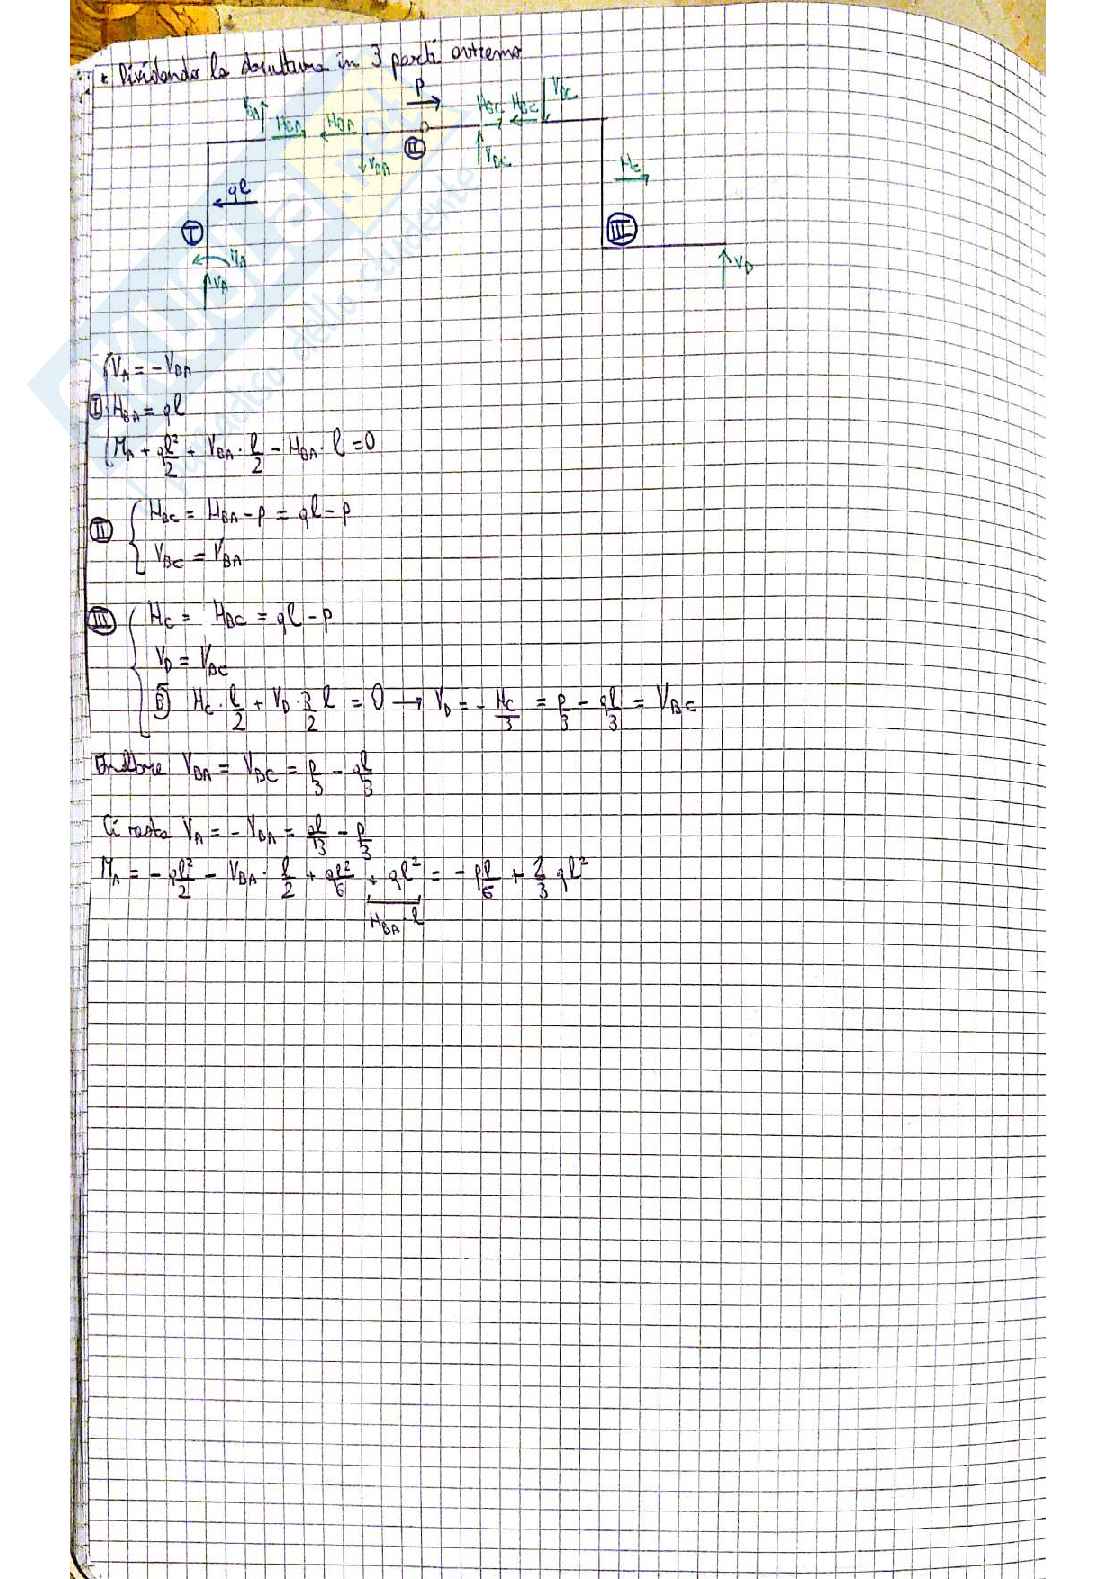 * Dividendo la struttura in 3 parti avremo
P
V_BA H_BA H_BA H_BC H_BC V_BC
II
V_BA V_BC
ql
H_C
I
III
M_A
V_A
V_D
V_A = -V_BA
I H_BA = ql
M_A + ql²/2 + V_BA · l/2 - H_BA · l = 0
II H_BC = H_BA - P = ql - P
V_BC = V_BA
III H_C = H_BC = ql - P
V_D = V_BC
B) H_C · l/2 + V_D · 3/2 l = 0 → V_D = - H_C/3 = P/3 - ql/3 = V_BC
Inoltre V_BA = V_BC = P/3 - ql/3
Ci resta V_A = -V_BA = ql/3 - P/3
M_A = - ql²/2 - V_BA · l/2 + ql²/6 + ql² = - Pl/6 + 2/3 ql²
H_BA · l